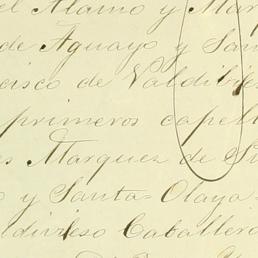 el Alamo y Marq
de Aguayo y San
cisco de Valdivie
primeros capell
es Marques de S
y Santa Olaya
ldivieso Caballero